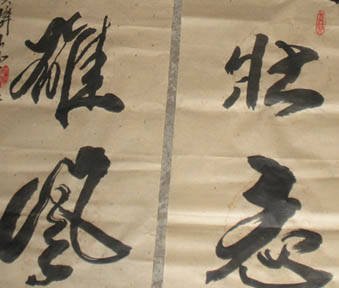 壮志
雄风